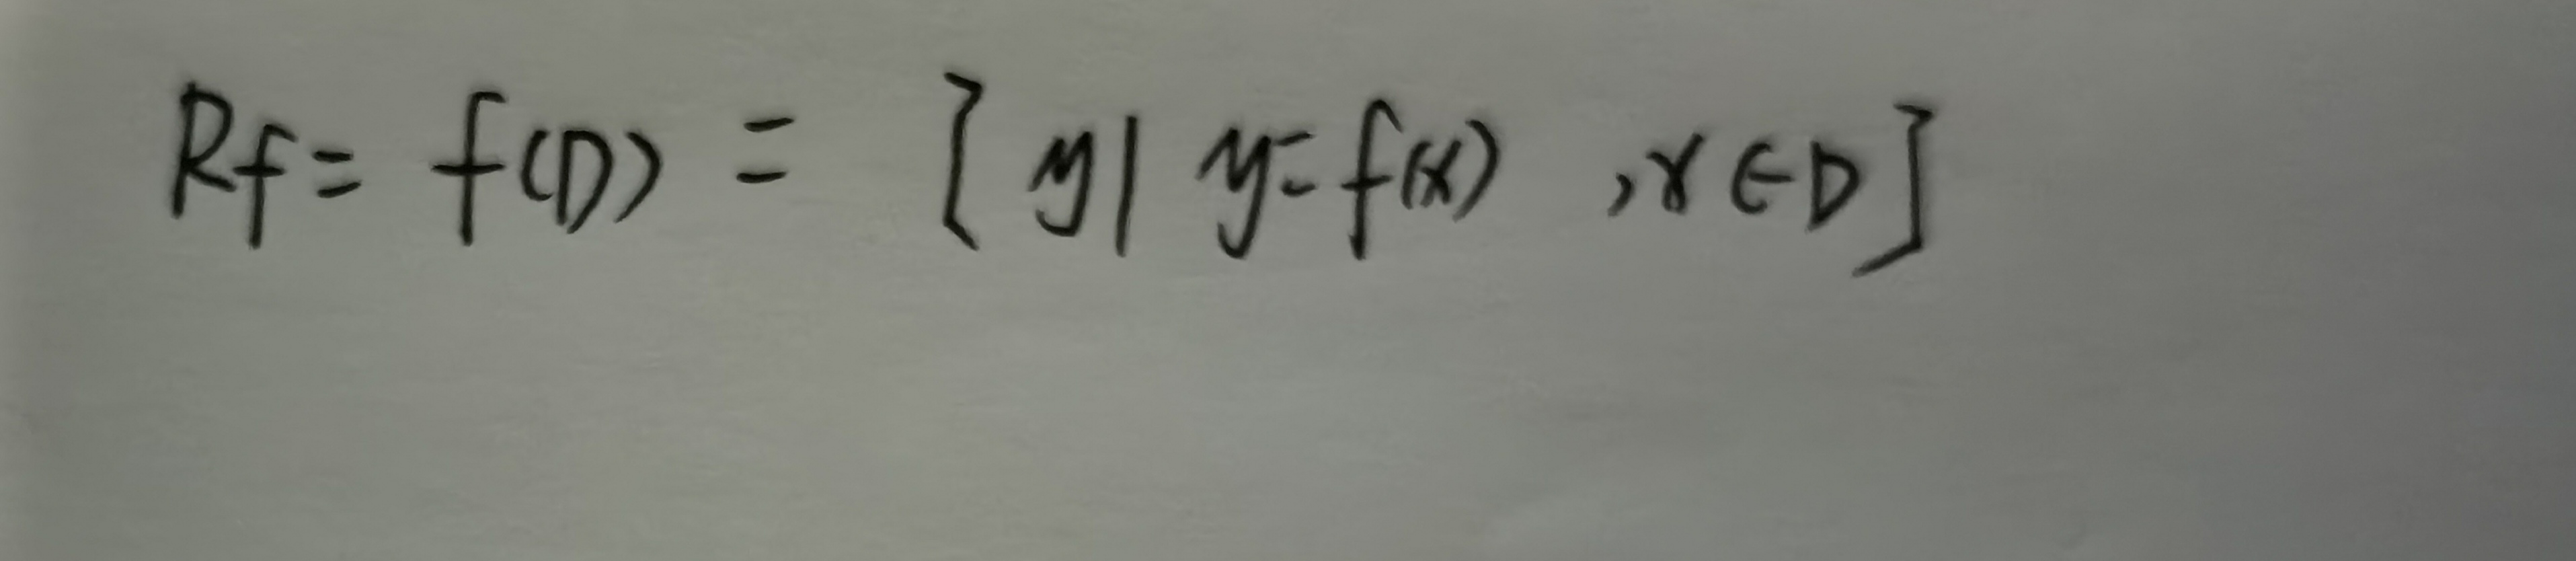 Rf = f(D) = { y | y = f(x) , x ∈ D }